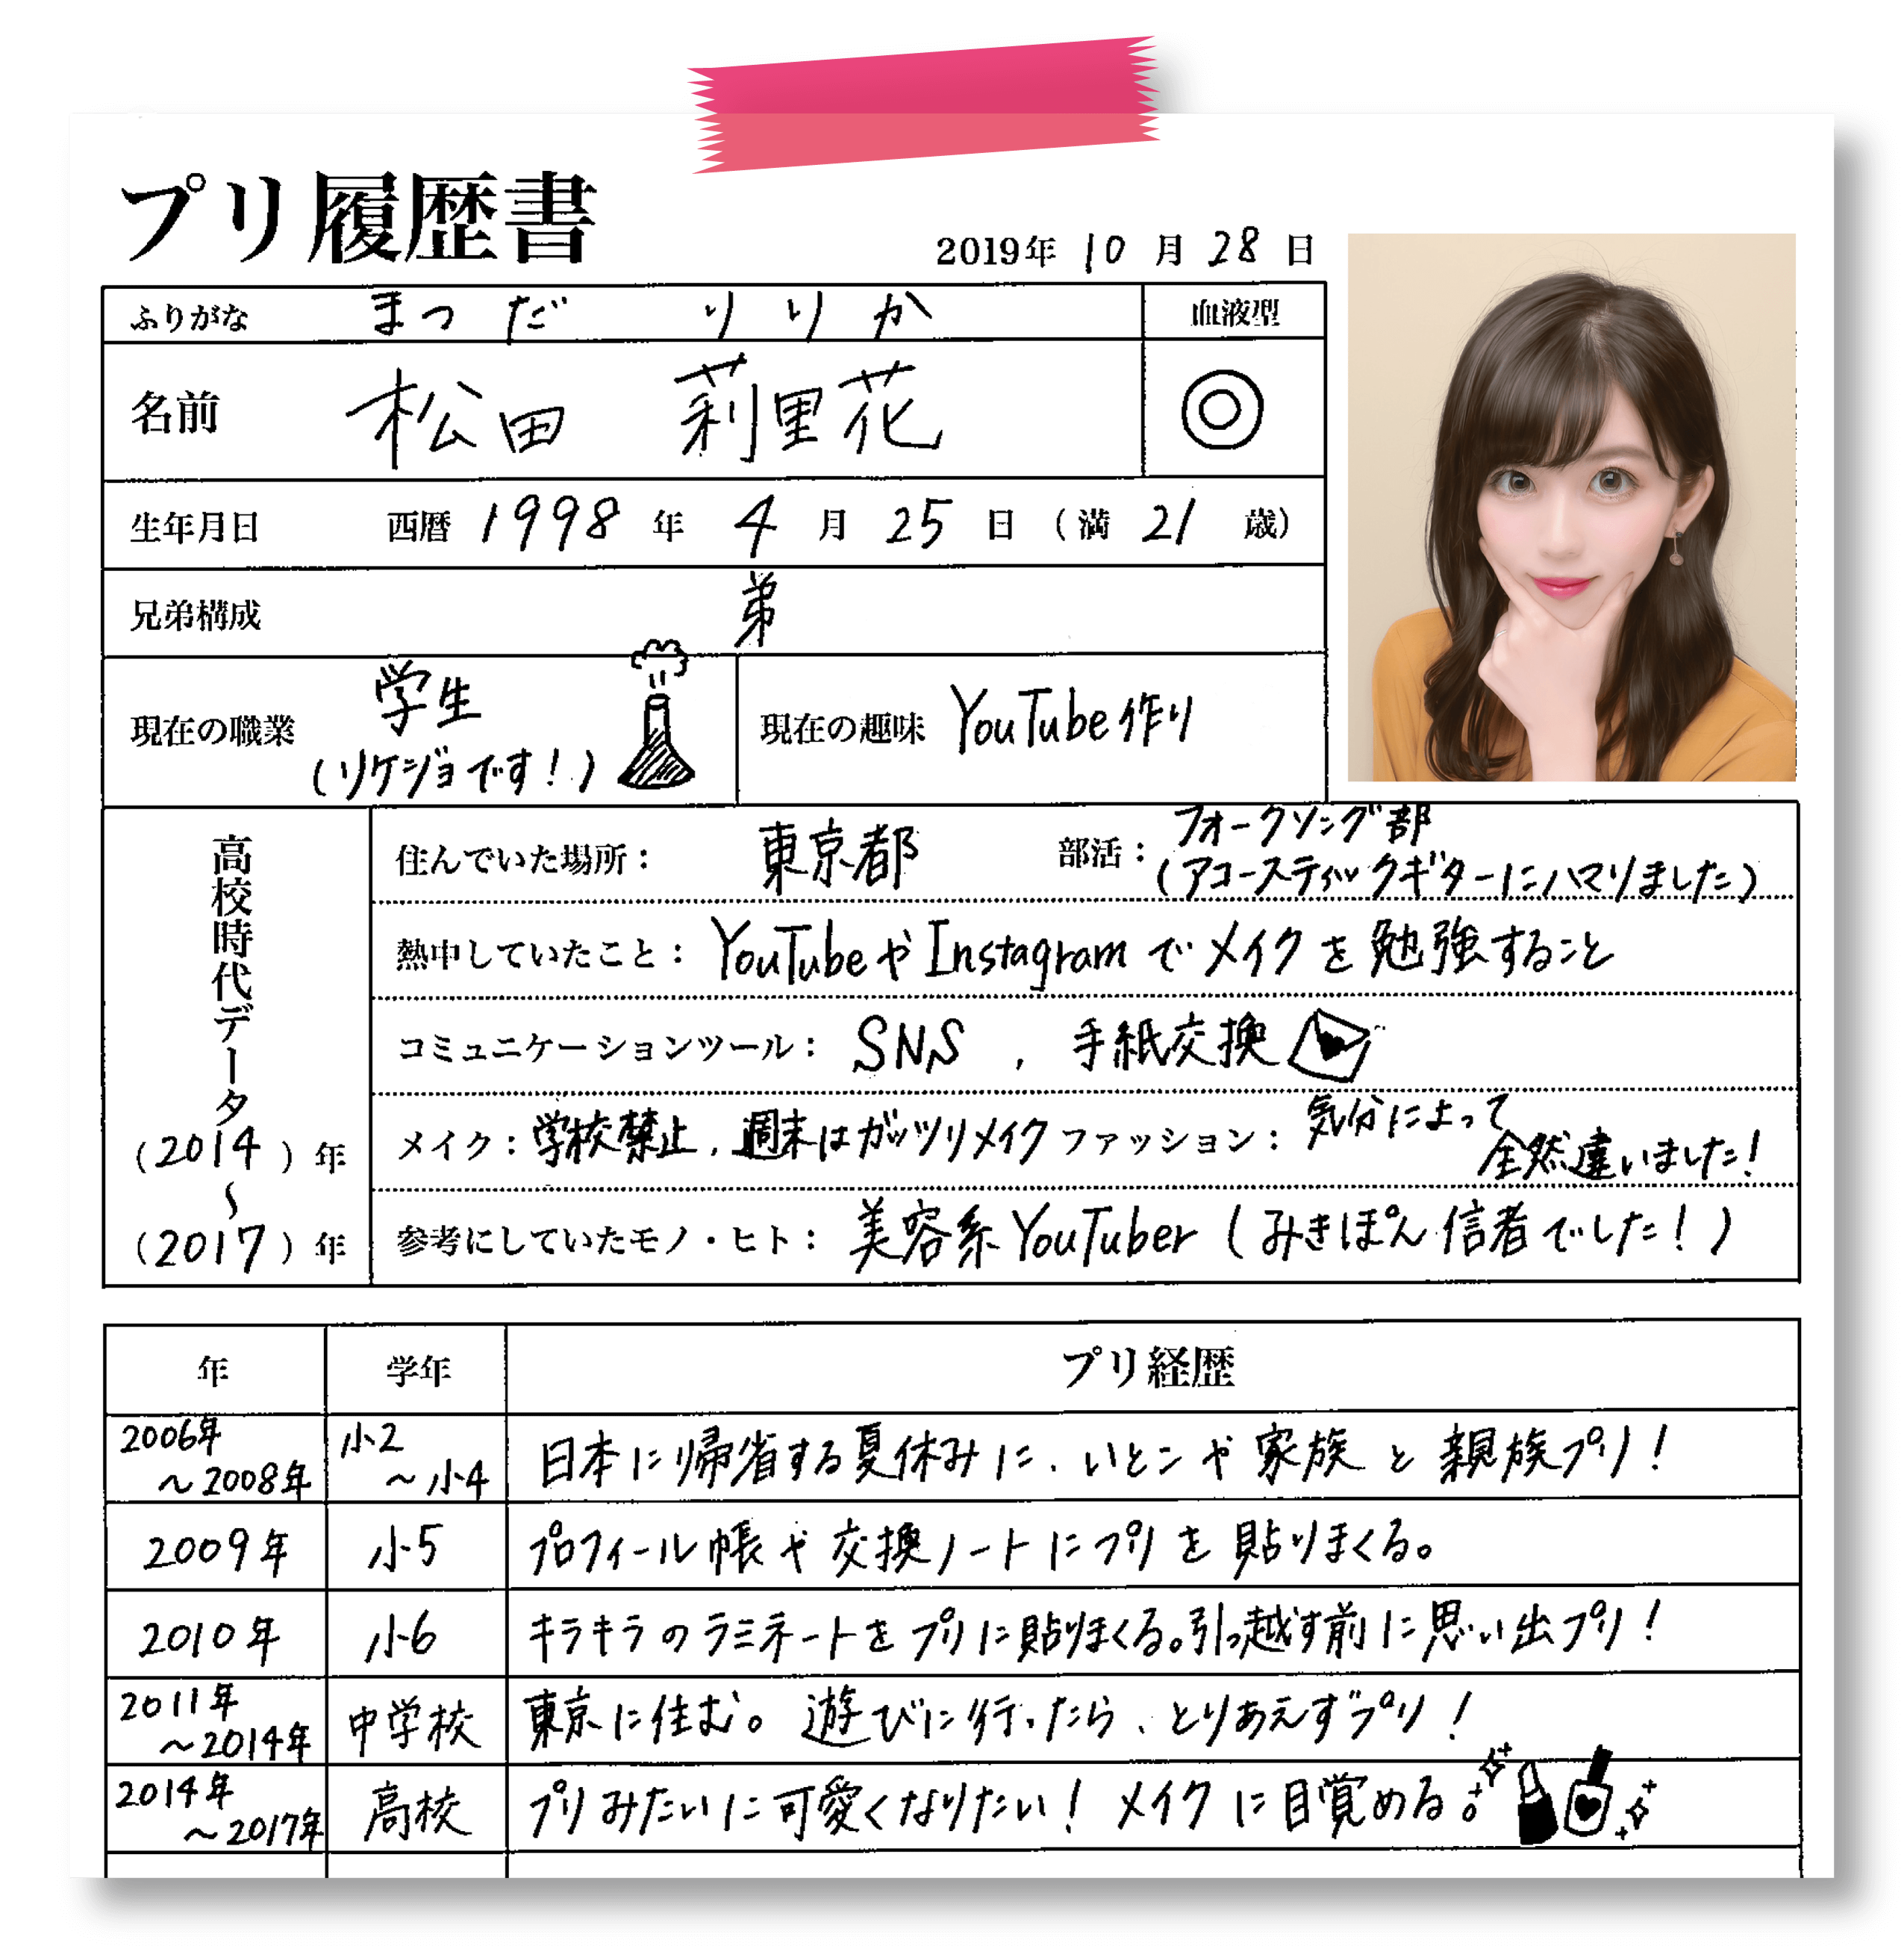 プリ履歴書
2019年 10月 28日
ふりがな まつだ りりか
血液型
名前 松田 莉里花
生年月日 西暦 1998年 4月 25日 (満 21 歳)
兄弟構成 弟
現在の職業 学生
(リケジョです!)
現在の趣味 YouTube作り
高校時代データ
(2014)年
〜
(2017)年
住んでいた場所: 東京都
部活: フォークソング部
(アコースティックギターにハマりました)
熱中していたこと: YouTubeやInstagramでメイクを勉強すること
コミュニケーションツール: SNS , 手紙交換
メイク: 学校禁止、週末はガッツリメイク
ファッション: 気分によって
全然違いました!
参考にしていたモノ・ヒト: 美容系YouTuber (みきぽん信者でした!)
年 学年 プリ経歴
2006年
〜2008年
小2
〜小4
日本に帰省する夏休みに、いとこや家族と親族プリ!
2009年 小5 プロフィール帳や交換ノートにプリを貼りまくる。
2010年 小6 キラキラのラミネートをプリに貼りまくる。引っ越す前に思い出プリ!
2011年
〜2014年
中学校 東京に住む。遊びに行ったら、とりあえずプリ!
2014年
〜2017年
高校 プリみたいに可愛くなりたい!メイクに目覚める